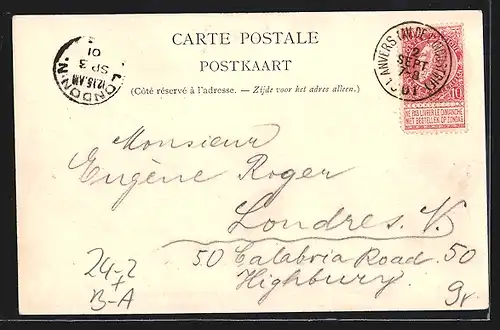 CARTE POSTALE
POSTKAART
(Côté réservé à l'adresse. — Zijde voor het adres alleen.)
LONDON. N.
12.15 AM
SP 3
01
ANVERS
2
SEPT
7-8
01
10
NE PAS LIVRER LE DIMANCHE
NIET BESTELLEN OP ZONDAG
Monsieur
Eugène Roger
Londres. N.
50 Calabria Road. 50
Highbury.
24-2
B-A
9r